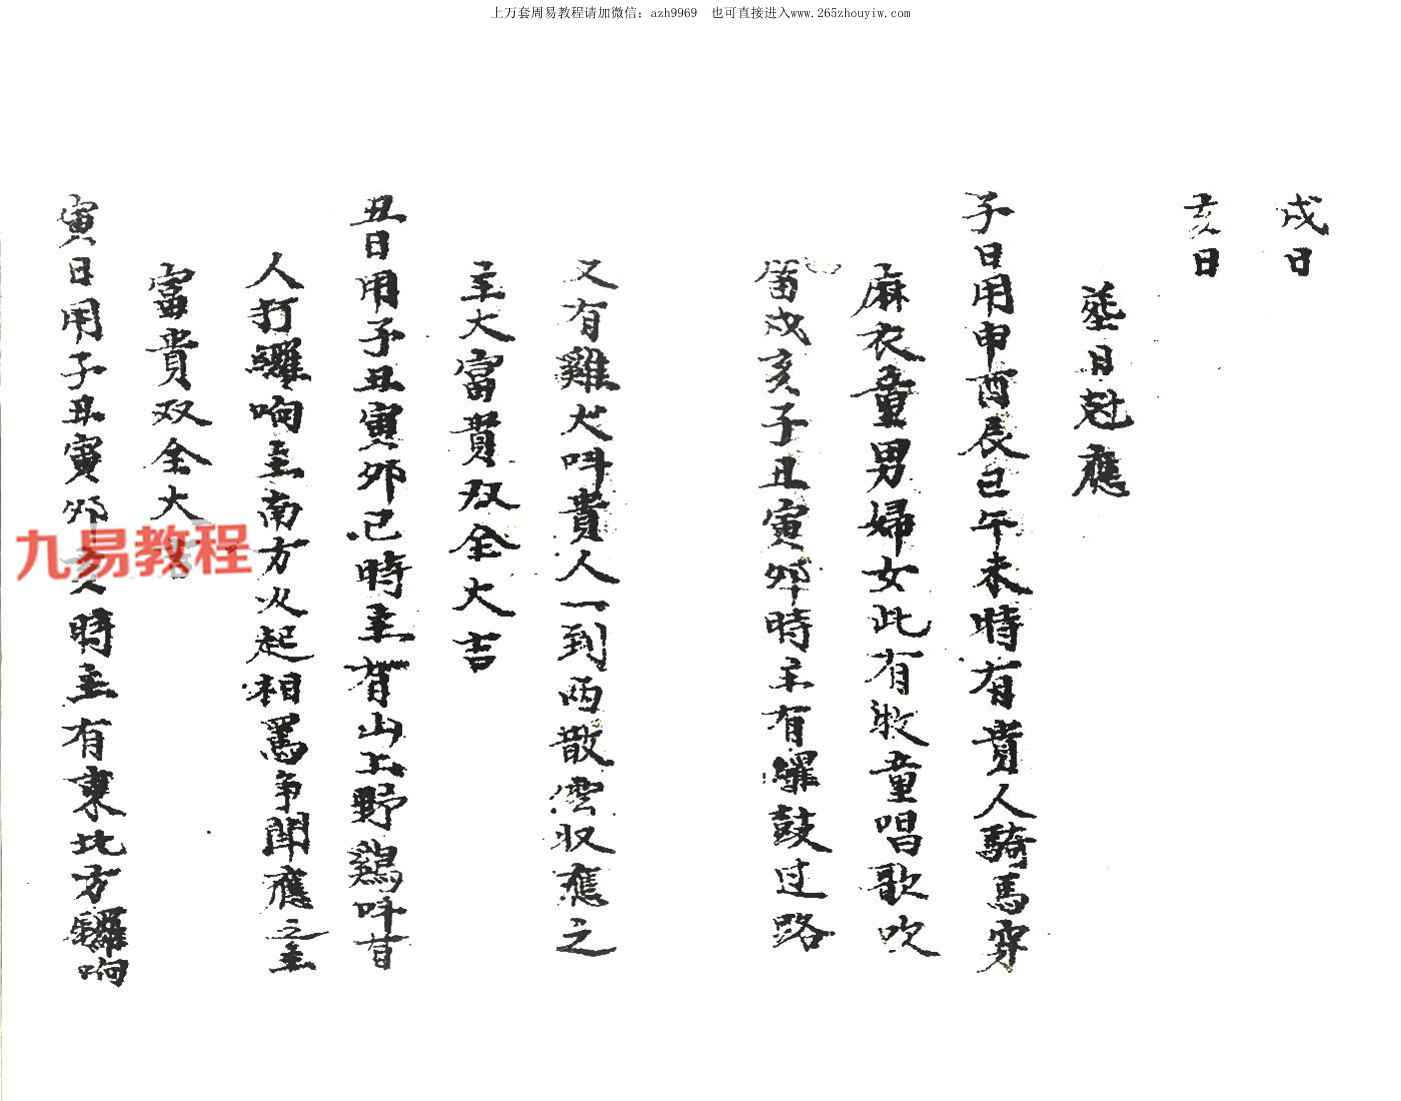 上万套周易教程请加微信：azh9969 也可直接进入www.265zhouyiw.com
戌日
亥日
葬日尅應
子日用申酉辰巳午未時有貴人騎馬穿
麻衣童男婦女此有牧童唱歌吹
笛戌亥子丑寅卯時主有鑼鼓过路
又有雞犬叫貴人一到两散雲收應之
主大富貴双全大吉
丑日用子丑寅卯巳時主有山上野鷄叫有
人打鑼响主南方火起相罵争鬧應之主
富貴双全大吉
寅日用子丑寅卯亥時主有東北方鑼响
九易教程